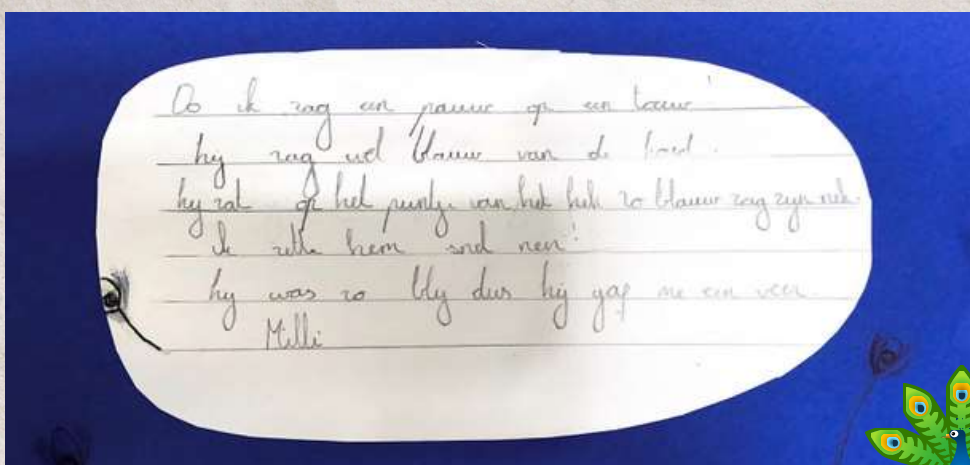 Oo ik zag een pauw op een touw!
hij zag wel blauw van de kou.
hij zat op het puntje van het hek zo blauw zag zijn nek.
ik zette hem snel neer!
hij was zo blij dus hij gaf me een veer.
Milli